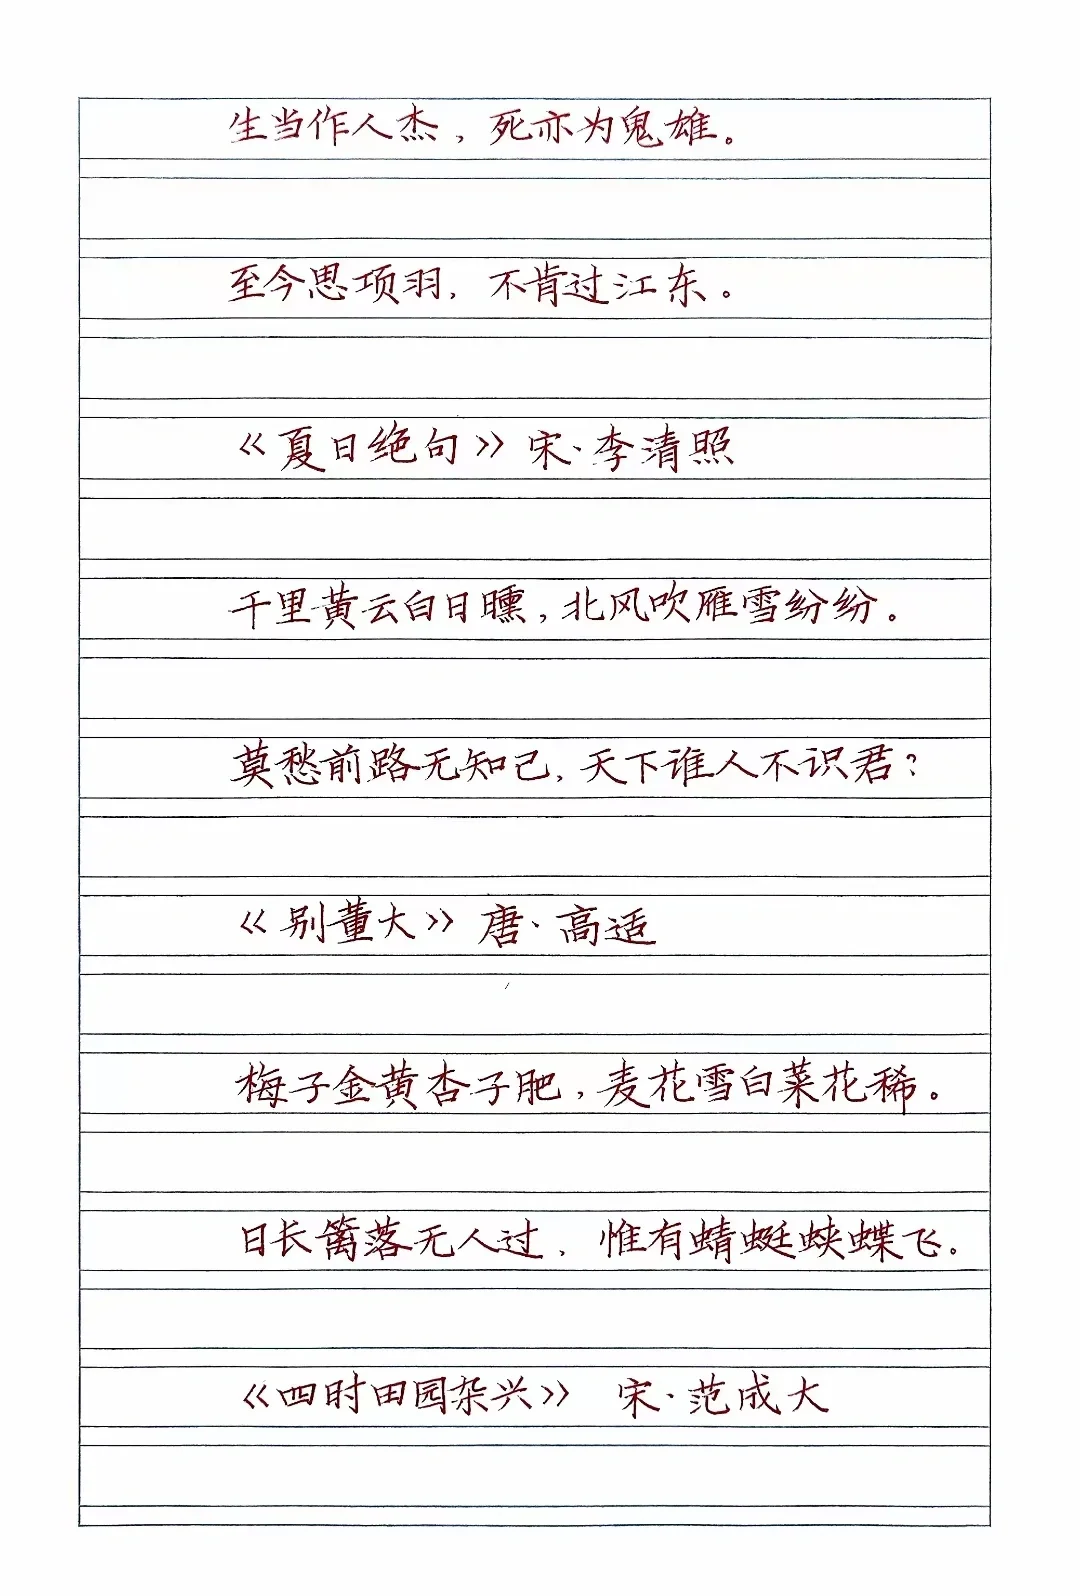 生当作人杰，死亦为鬼雄。
至今思项羽，不肯过江东。
《夏日绝句》宋·李清照
千里黄云白日曛，北风吹雁雪纷纷。
莫愁前路无知己，天下谁人不识君？
《别董大》唐·高适
梅子金黄杏子肥，麦花雪白菜花稀。
日长篱落无人过，惟有蜻蜓蛱蝶飞。
《四时田园杂兴》 宋·范成大